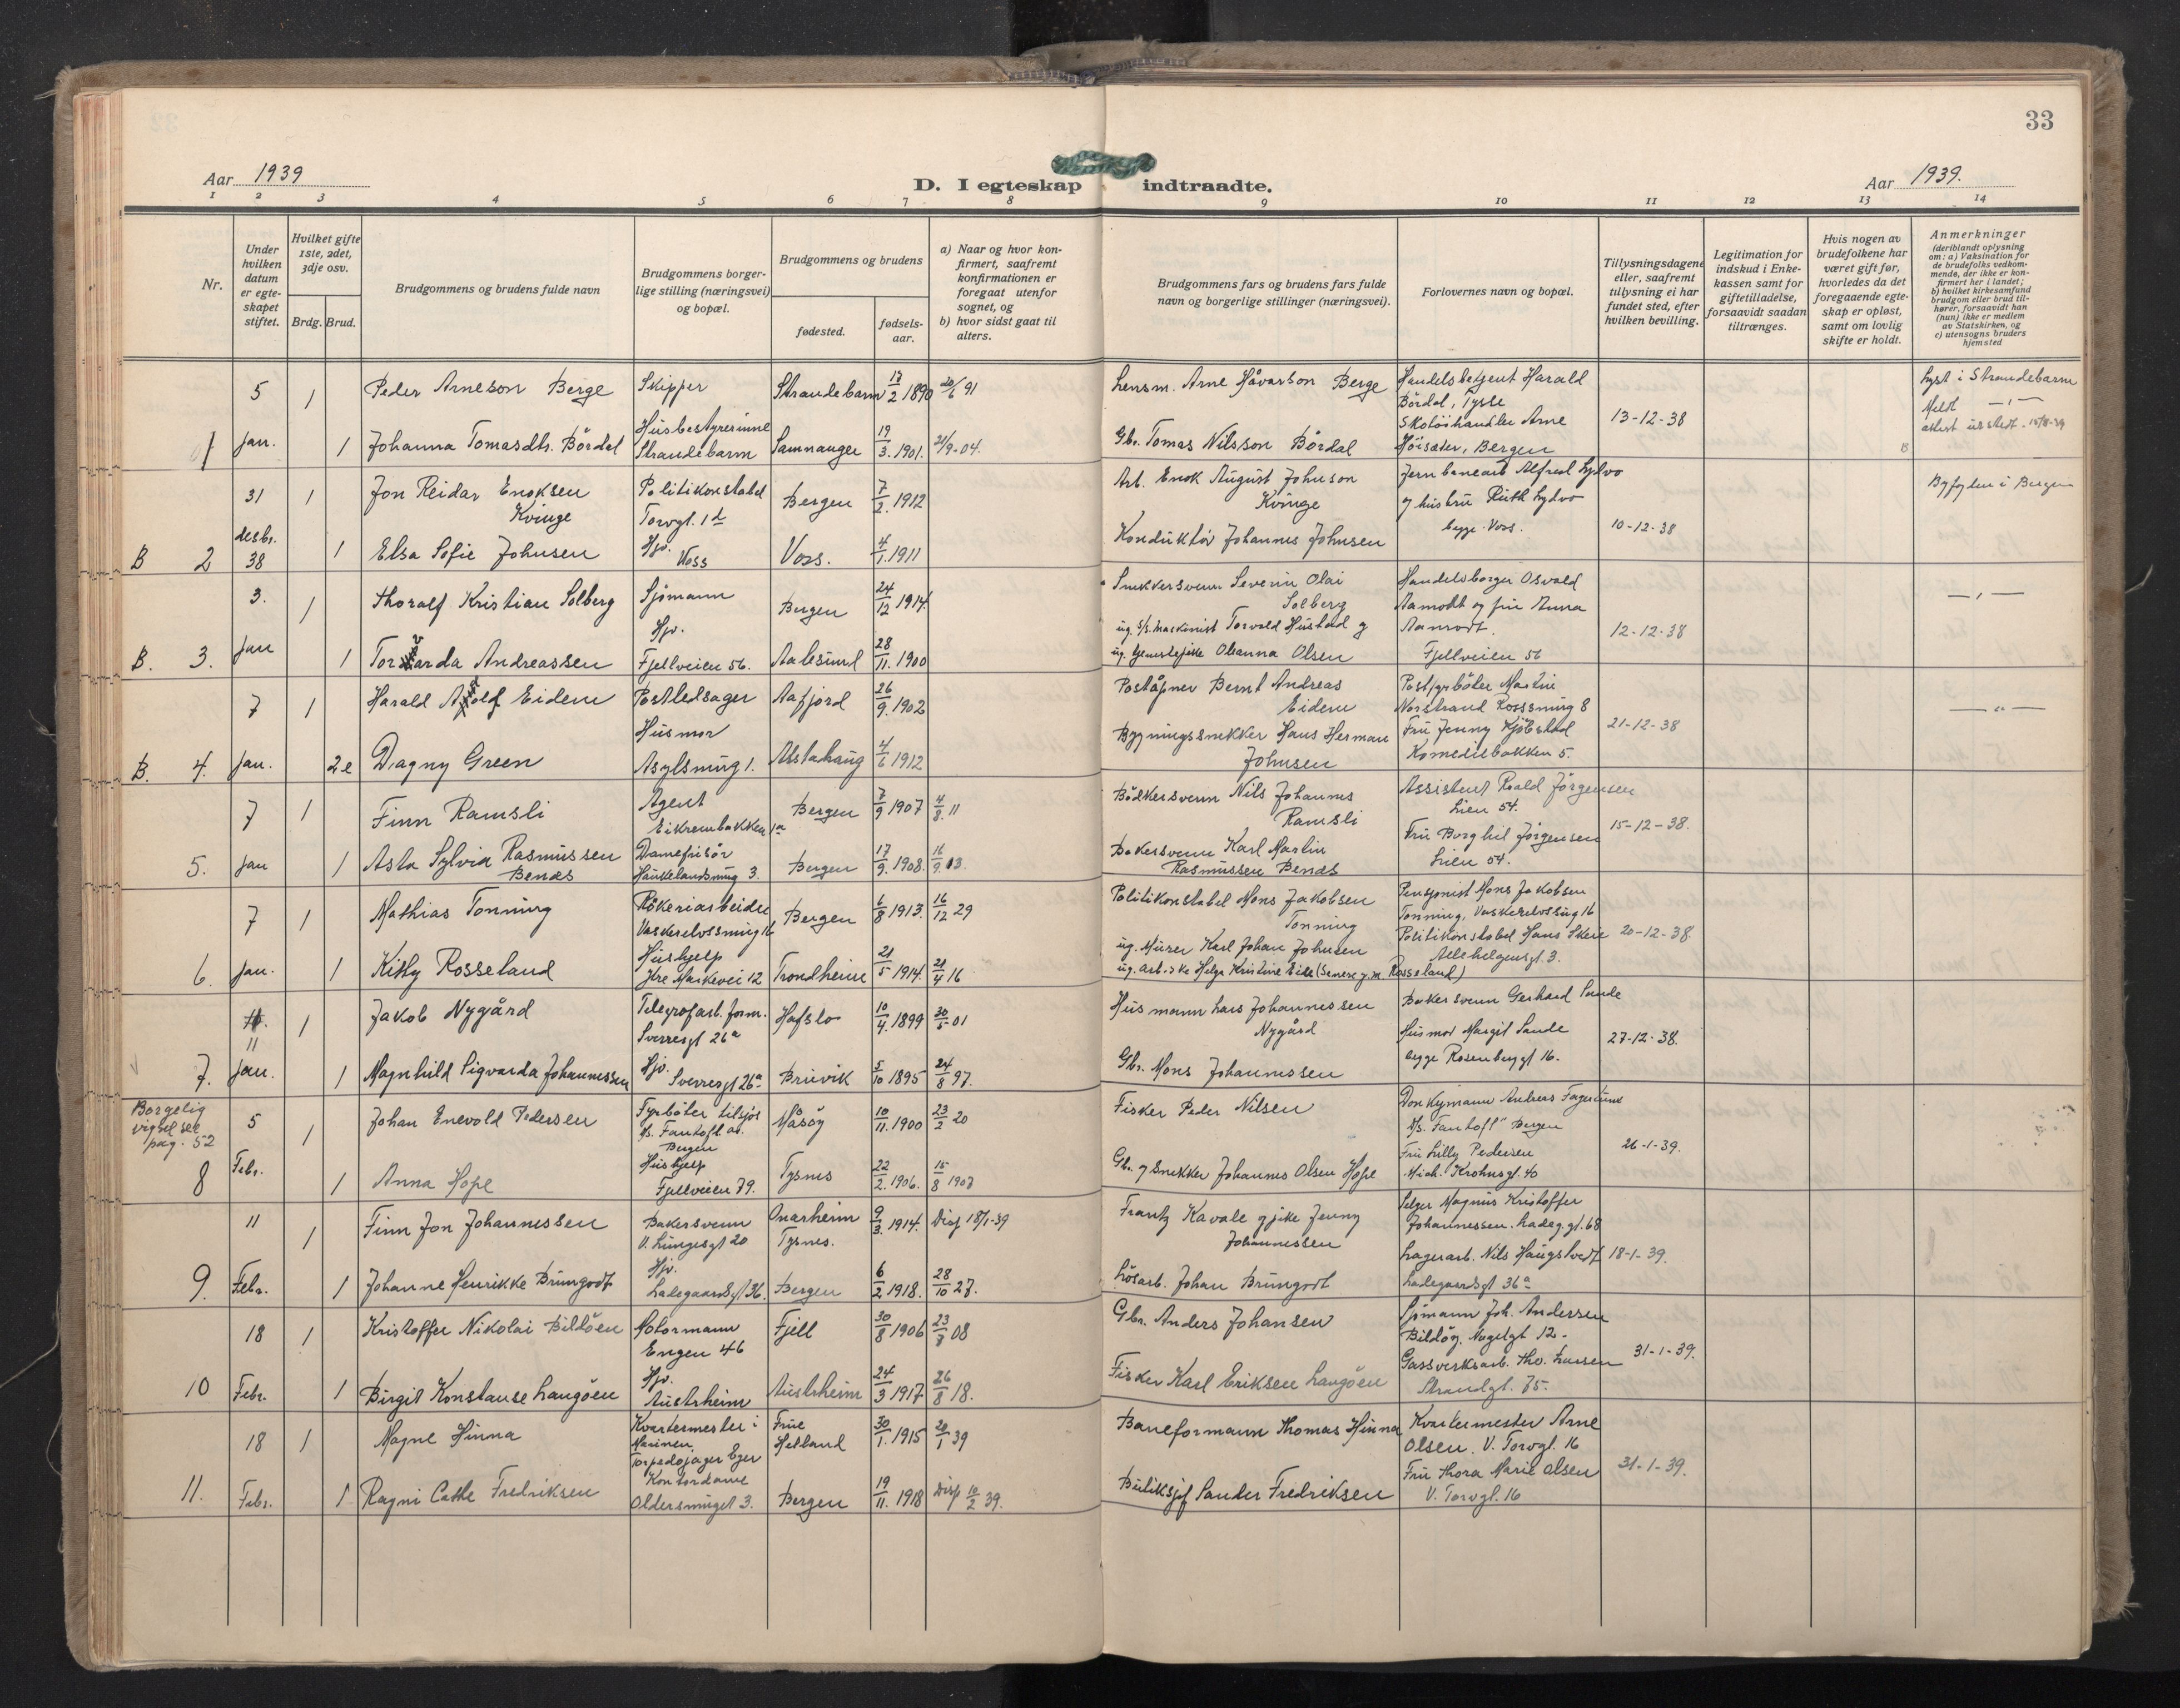 33
Aar 1939
D. I egteskap indtraadte.
Aar 1939.
1 2 3 4 5 6 7 8 9 10 11 12 13 14
Nr.
Under hvilken datum er egteskapet stiftet.
Hvilket gifte 1ste, 2det, 3dje osv.
Brdg. Brud.
Brudgommens og brudens fulde navn
Brudgommens borgerlige stilling (næringsvei) og bopæl.
Brudgommens og brudens
fødested.
fødselsaar.
a) Naar og hvor konfirmert, saafremt konfirmationen er foregaat utenfor sognet, og
b) hvor sidst gaat til alters.
Brudgommens fars og brudens fars fulde navn og borgerlige stillinger (næringsvei).
Forlovernes navn og bopæl.
Tillysningsdagene eller, saafremt tillysning ei har fundet sted, efter hvilken bevilling.
Legitimation for indskud i Enkekassen samt for giftetilladelse, forsaavidt saadan tiltrænges.
Hvis nogen av brudefolkene har været gift før, hvorledes da det foregaaende egteskap er opløst, samt om lovlig skifte er holdt.
Anmerkninger
(deriblandt oplysning om: a) Vaksination for de brudefolks vedkommende, der ikke er konfirmert her i landet; b) hvilket kirkesamfund brudgom eller brud tilhører, forsaavidt han (hun) ikke er medlem av Statskirken, og c) utensogns bruders hjemsted
5 1 Peder Arneson Berge Skipper Strandebarm 17/2 1890 20/6 91 Lensm. Arne Håvarson Berge Handelsbetjent Harald Bördal, Tysse 13-12-38 Lyst i Strandebarm
1 Jan. 1 Johanna Tomasdtr. Bördal Husbestyrerinne Strandebarm Samnanger 19/3 1901. 21/9-04. Gbr. Tomas Nilsson Bördal Skotöihandler Arne Höisæter, Bergen Meldt
31 1 Jon Reidar Enoksen Kvinge Politikonstabel Torvgt. 1d Bergen 7/2 1912 Arb. Enok August Johnson Kvinge Jernbanearb Alfred Lydvo og hustru Ruth Lydvo begge Voss. 10-12-38 Byfogden i Bergen
B 2 desbr. 38 1 Elsa Sofie Johnsen Hjv. Voss Voss. 4/1 1911 Konduktör Johannes Johnsen
3. 1 Thoralf Kristian Solberg Sjömann Bergen 24/12 1914. Snekkersvenn Severin Olai Solberg Handelsborger Osvald Aamodt og fru Anna Aamodt. 12-12-38 — " —
B. 3. Jan 1 Torvarda Andreassen Hjv. Fjellveien 56. Aalesund 28/11. 1900 ug. S/S. maskinist Torvald Hustad og ug. tjenestepike Oleanna Olsen Fjellveien 56
7 1 Harald Adolf Eidem Postledsager Aafjord 26/9. 1902 Poståpner Bernt Andreas Eidem Postfyrböter Martin Norstrand Rosssmug 8 21-12-38 — " —
B. 4. Jan. 2e Dagny Green Husmor Asylsmug 1. Alstahaug 4/6 1912 Bygningssnekker Hans Herman Johnsen Fru Jenny Kjöbstad Komediebakken 5.
7 1 Finn Ramsli Agent Eikrembakken 1a Bergen 7/9 1907 4/8 11 Bödkersvenn Nils Johannes Ramsli Assistent Roald Jörgensen Lien 54. 15-12-38.
5. Jan 1 Asta Sylvia Rasmussen Benes Damefrisör Haukelandsmug 3. Bergen 17/9. 1908. 16/9. 13. Bakersvenn Karl Martin Rasmussen Benes Fru Borghil Jörgensen Lien 54.
7 1 Mathias Tonning Rökeriarbeider Vaskerelvssmug 16 Bergen 6/8 1913. 16/12 29 Politikonstabel Mons Jakobsen Tonning Pensjonist Mons Jakobsen Tonning, Vaskerelvssmug 16 20-12-38.
6. Jan. 1 Kitty Rosseland Hushjelp Jkre Markevei 12 Trondheim 21/5 1914. 21/4 16 ug. Murer Karl Johan Johnsen ug. arb.ske Helga Kristine Eide (Senere g.m. Rosseland) Politikonstabel Hans Skeie Allehelgensgt. 3.
11 1 Jakob Nygård Telegrafarb. form. Sverresgt 26a Hafslo 10/4. 1899 30/5-01 Husmann Lars Johannessen Nygård Bakersvenn Gerhard Sande 27-12-38.
7. Jan. 1 Magnhild Sigvarda Johannessen Hjv. Sverresgt 26a Bruvik 5/10 1895 24/8 97. Gbr. Mons Johannessen Husmor Margit Sande begge Rosenbergt 16.
Borgelig vigsel see pag. 52
5 1 Johan Enevold Pedersen Fyrböter tilsjös Bergen Måsöy 10/11. 1900 23/2 20 Fisker Peder Nilsen Donkymann Andreas Fagerlund M/s. "Fantoft" Bergen 26-1-39.
8 Febr. 1 Anna Hope Hushjelp Fjellveien 79. Tysnes 22/2. 1906. 15/8 1907 Gbr. og snekker Johannes Olsen Hope Fru Lilly Pedersen Mich. Krohnsgt. 40
11 1 Finn Jon Johannessen Bakersvenn V. Lungesgt 20 Onarheim Tysnes. 9/3. 1914. Disp 18/1-39 Frantz Kavale og pike Jenny Johannessen Selger Magnus Kristoffer Johannessen. Ladeg. gt. 68 18-1-39.
9. Febr. 1 Johanne Henrikke Brungodt Hjv. Ladegaardsgt 36. Bergen 6/2 1918. 28/10 27. Lösarb. Johan Brungodt Lagerarb. Nils Haugstvedt Ladegaardsgt 36a
18 1 Kristoffer Nikolai Bildöen Motormann Engen 46 Fjell 30/8 1906 23/8 08 Gbr. Anders Johansen Sjömann Joh. Andersen Bildöy. Nygelgt 12. 31-1-39.
10 Febr. 1 Birgit Konstanse Langöen Hjv. Austrheim Austrheim 24/3 1917 26/8 18. Fisker Karl Eriksen Langöen Gassverksarb. Thv. Larsen Strandgt. 75.
18 1 Magne Hinna Kvartermester i Marinen Torpedojager Eger Frue Hetland 30/1. 1915 20/1 39 Baneformann Thomas Hinna Kvartermester Arne Olsen. V. Torvgt. 16 31-1-39.
11. Febr. 1 Ragni Cathe Fredriksen Kontordame Oldersmuget 3. Bergen 19/11. 1918 Disp 10/2 39. Butiksjef Sander Fredriksen Fru Thora Marie Olsen V. Torvgt. 16